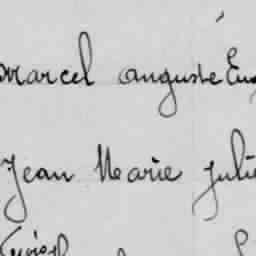 Marcel Auguste Eug
Jean Marie Julie